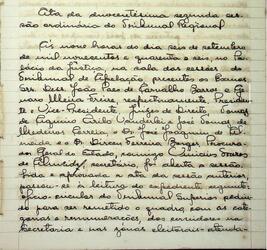 Ata da ducentésima segunda ses-
são ordinária do Tribunal Regional
Às nove horas do dia seis de setembro
de mil novecentos e quarenta e seis, no Pa-
lácio da Justiça, na sala das sessões do
Tribunal de Apelação, presentes os Exmos.
Srs. Des. João Paes de Carvalho Barros e Ge-
naro Freire, respectivamente Presidente
e Vice-Presidente, Juizes de Direito, Tomaz
de Aquino Cirilo Wanderlei e José
Medeiros Correia, e Dr. José Joaquim de Al-
meida e o Dr. Dirceu Ferreira Borges, Procura-
dor Geral do Estado, comigo
de Almeida, secretário, foi aberta a sessão,
lida e aprovada a ata da sessão anterior,
passou-se à leitura do expediente seguinte:
do Tribunal Superior pedin-
do para ser remetido o quadro com as cate-
gorias e remunerações dos servidores na
Secretaria e nas zonas eleitorais